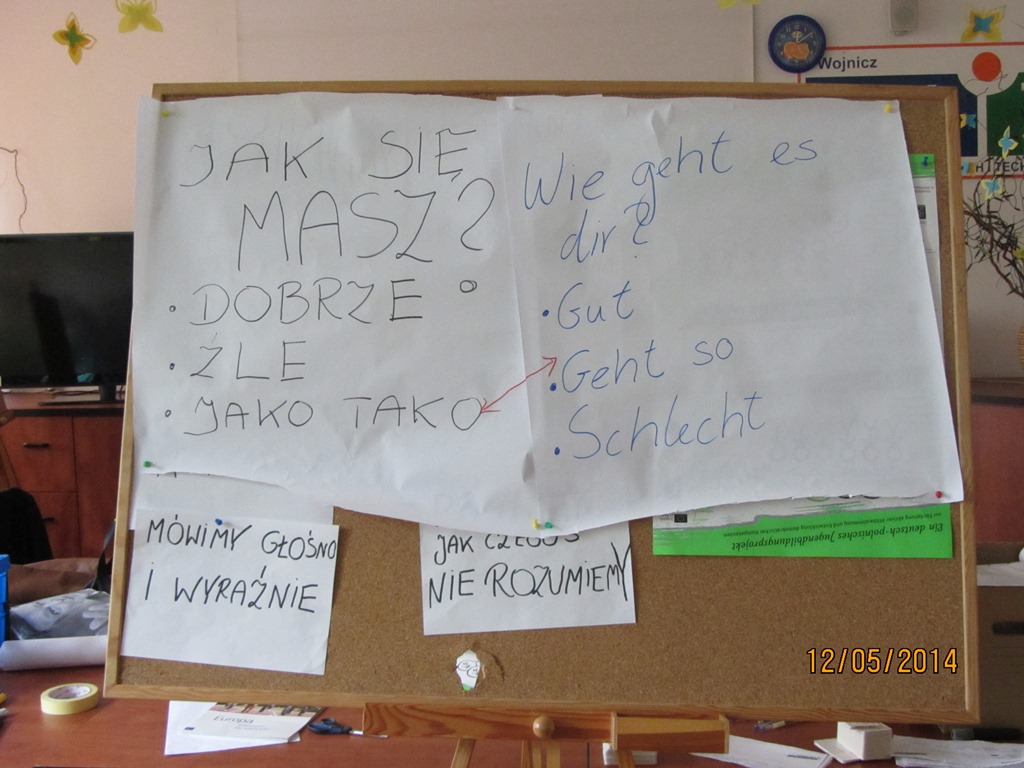 JAK SIĘ
MASZ?
• DOBRZE
• ŹLE
• JAKO TAKO
Wie geht es
dir?
• Gut
• Geht so
• Schlecht
MÓWIMY GŁOŚNO
I WYRAŹNIE
JAK CZEGOŚ
NIE ROZUMIEMY
Ein deutsch-polnisches Jugendbildungsprojekt
Wojnicz
Europa
12/05/2014